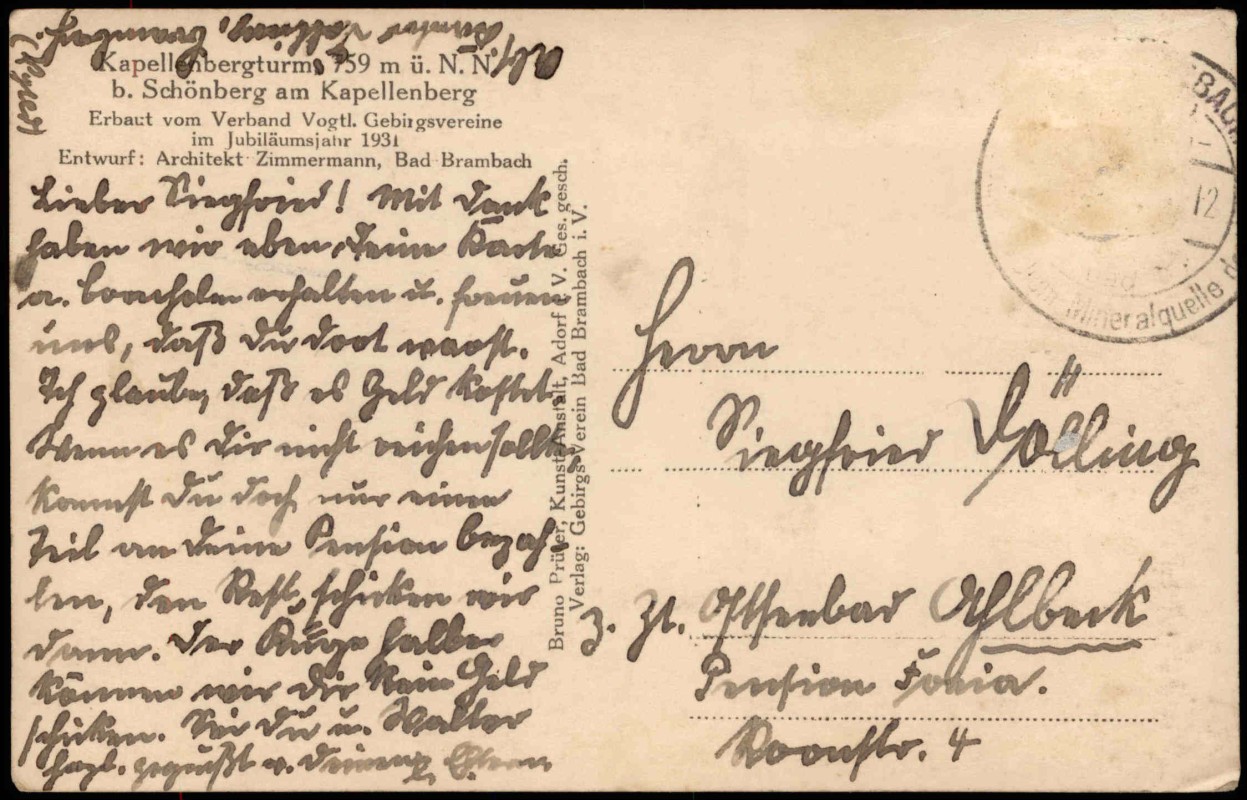 Kapellenbergturm, 759 m ü. N. N.
b. Schönberg am Kapellenberg
Erbaut vom Verband Vogtl. Gebirgsvereine
im Jubiläumsjahr 1931
Entwurf: Architekt Zimmermann, Bad Brambach
Lieber Siegfried! Mit Dank
haben wir eben Deine Karte
a. erhalten u. freuen
uns, daß Du dort warst.
Ich glaube, daß es Geld kostet.
Wenn es Dir nicht reichen sollte
kannst Du doch nur einen
Teil an Deine Pension bezah-
len, den Rest schicken wir
dann. Der halber
können wir Dir kein Geld
schicken. Sei Du u. Walter
herzl. gegrüßt v. Deinen Eltern
Bruno Prüfer, Kunst-Anstalt, Adorf i. V. Ges. gesch.
Verlag: Gebirgs-Verein Bad Brambach i. V.
Mineralquelle
12
Herrn
Siegfried Dölling
z. Zt. Ostseebad Ahlbeck
Pension
Roonstr. 4